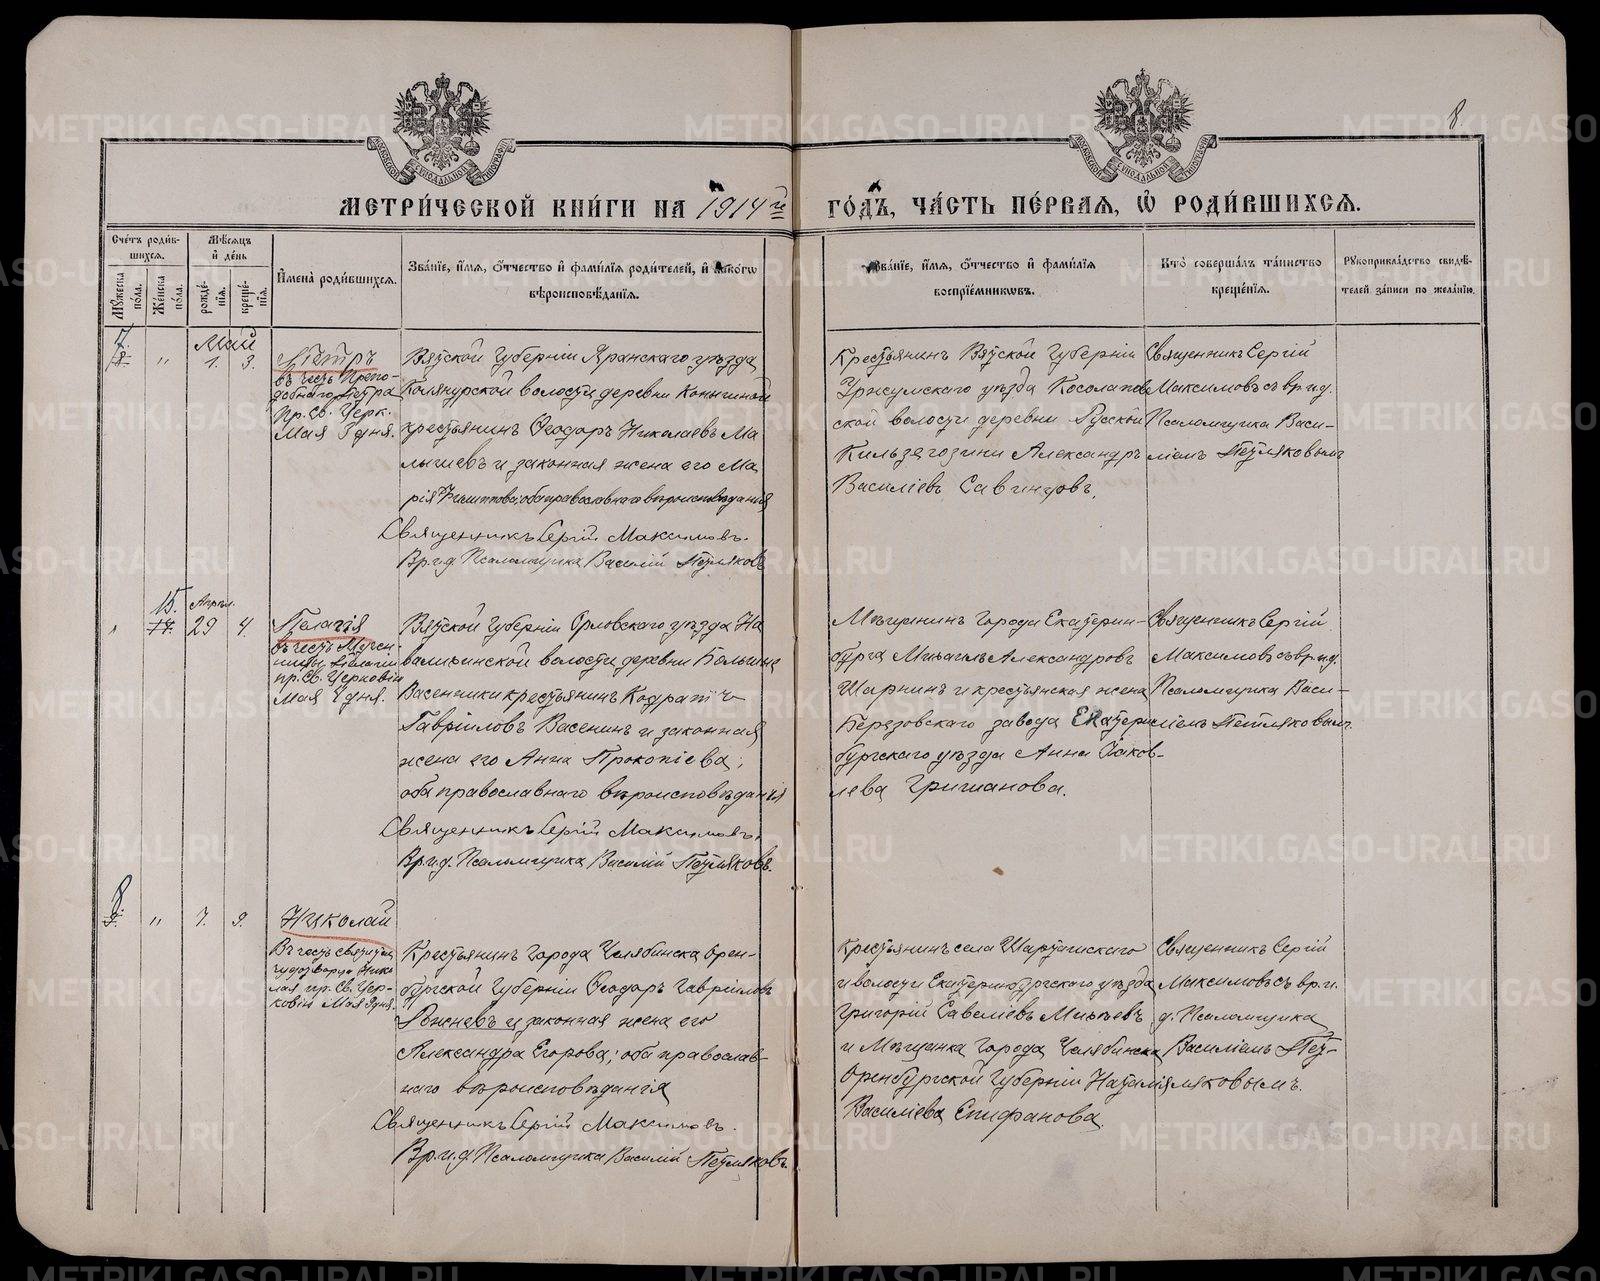 8
МОСКОВСКОЙ СѴНОДАЛЬНОЙ ТИПОГРАФІИ
МОСКОВСКОЙ СѴНОДАЛЬНОЙ ТИПОГРАФІИ
МЕТРИ́ЧЕСКОЙ КНИ́ГИ НА 1914 й ГО́ДЪ, ЧА́СТЬ ПЕ́РВАЯ, Ѡ҆ РОДИ́ВШИХСЯ.
Сче́тъ роди́в-
шихся.
Мꙋ́жеска по́ла.
Же́нска по́ла.
Мѣ́сяцъ
и҆ де́нь
рожде́-
нїя.
креще́-
нїя.
И҆мена̀ роди́вшихся.
Зва́нїе, и҆́мя, ѻ҆́тчество и҆ фами́лїя роди́телей, и҆ како́гѡ
вѣроисповѣ́данїя.
Зва́нїе, и҆́мя, ѻ҆́тчество и҆ фами́лїя
воспрїе́мникѡвъ.
Кто̀ соверша́лъ та́инство
креще́нїя.
Рꙋкоприкла́дство свидѣ́-
телей за́писи по жела́нїю.
Май
7.
8.
"
1.
3.
Петръ
въ честь Препо-
добнаго Петра
пр. Св. Церк.
Мая 3 дня.
Вятской Губерніи Яранскаго уѣзда
волости деревни
крестьянинъ Ѳеодоръ Николаевъ Ма
лышевъ и законная жена его Ма
рія Филиппова, оба православнаго вѣроисповѣданія
Священникъ Сергій Максимовъ.
Вр. и. д. Псаломщика Василій Петляковъ
Крестьянинъ Вятской Губерніи
Уржумскаго уѣзда Косолапов
ской волости деревни Русской
Александръ
Василіевъ Савинцовъ.
Священникъ Сергій
Максимовъ съ вр. и д.
Псаломщика Васи-
ліемъ Петляковымъ
15.
Апрѣл.
29
4.
Пелагія
въ честь Муче-
ницы Пелагіи
пр. Св. Церковію
Мая 4 дня.
Вятской Губерніи Орловскаго уѣзда
волости деревни Больше
Васенинки крестьянинъ Кодратъ
Гавріиловъ Васенинъ и законная
жена его Анна Прокопіева,
оба православнаго вѣроисповѣданія
Священникъ Сергій Максимовъ.
Вр. и. д. Псаломщика Василій Петляковъ.
Мѣщанинъ Города Екатерин-
бурга Михаилъ Александровъ
Шарнинъ и крестьянская жена
Березовскаго завода Екатерин
бургскаго уѣзда Анна Яков-
лева Гришанова.
Священникъ Сергій
Максимовъ съ вр. и д.
Псаломщика Васи-
ліемъ Петляковымъ.
8
9.
"
7.
9.
Николай
Въ честь святителя
чудотворца Нико
лая пр. Св. Цер-
ковію Мая 9 дня.
Крестьянинъ Города Челябинска Орен-
бургской Губерніи Ѳеодоръ Гавріиловъ
Рожневъ и законная жена его
Александра Егорова, оба православ-
наго вѣроисповѣданія
Священникъ Сергій Максимовъ.
Вр. и. д. Псаломщика Василій Петляковъ
Крестьянинъ села Шарташскаго
и волости Екатеринбургскаго уѣзда
Григорій Савеліевъ Михѣевъ
и Мѣщанка Города Челябинска
Оренбургской Губерніи Наталія
Василіева Епифанова.
Священникъ Сергій
Максимовъ съ вр. и.
д. Псаломщика
Василіемъ Пет-
ляковымъ.
METRIKI.GASO-URAL.RU